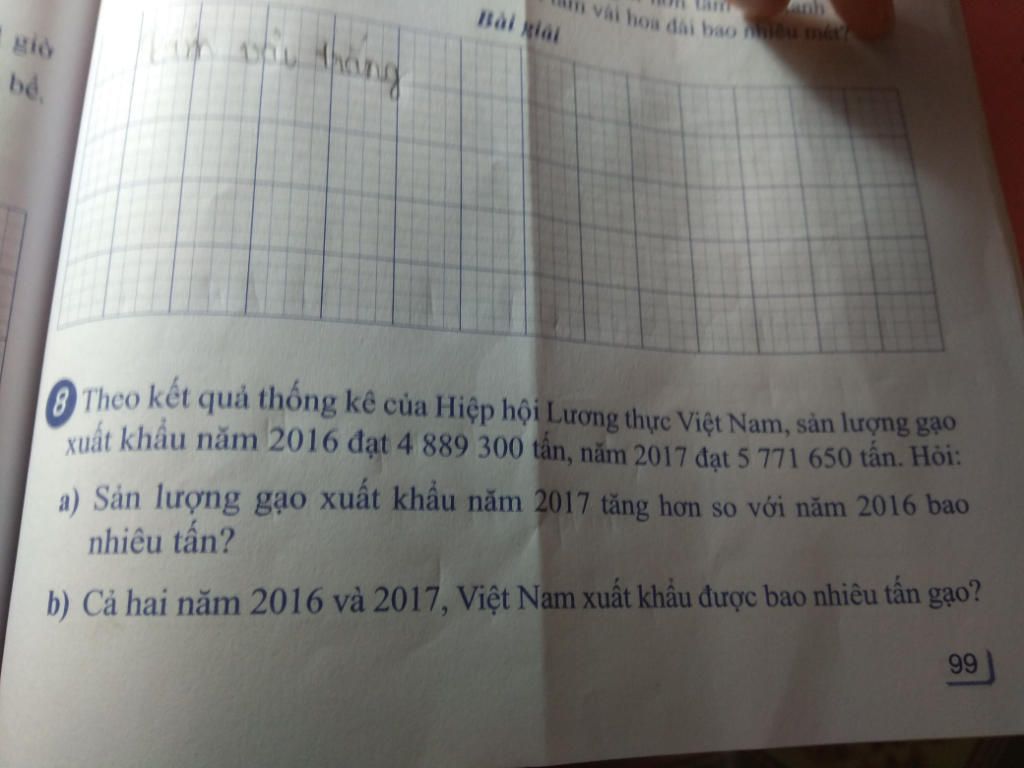 giờ
bể.
tấm vải hoa dài bao nhiêu mét?
Bài giải
Tấm vải trắng
8 Theo kết quả thống kê của Hiệp hội Lương thực Việt Nam, sản lượng gạo
xuất khẩu năm 2016 đạt 4 889 300 tấn, năm 2017 đạt 5 771 650 tấn. Hỏi:
a) Sản lượng gạo xuất khẩu năm 2017 tăng hơn so với năm 2016 bao
nhiêu tấn?
b) Cả hai năm 2016 và 2017, Việt Nam xuất khẩu được bao nhiêu tấn gạo?
99